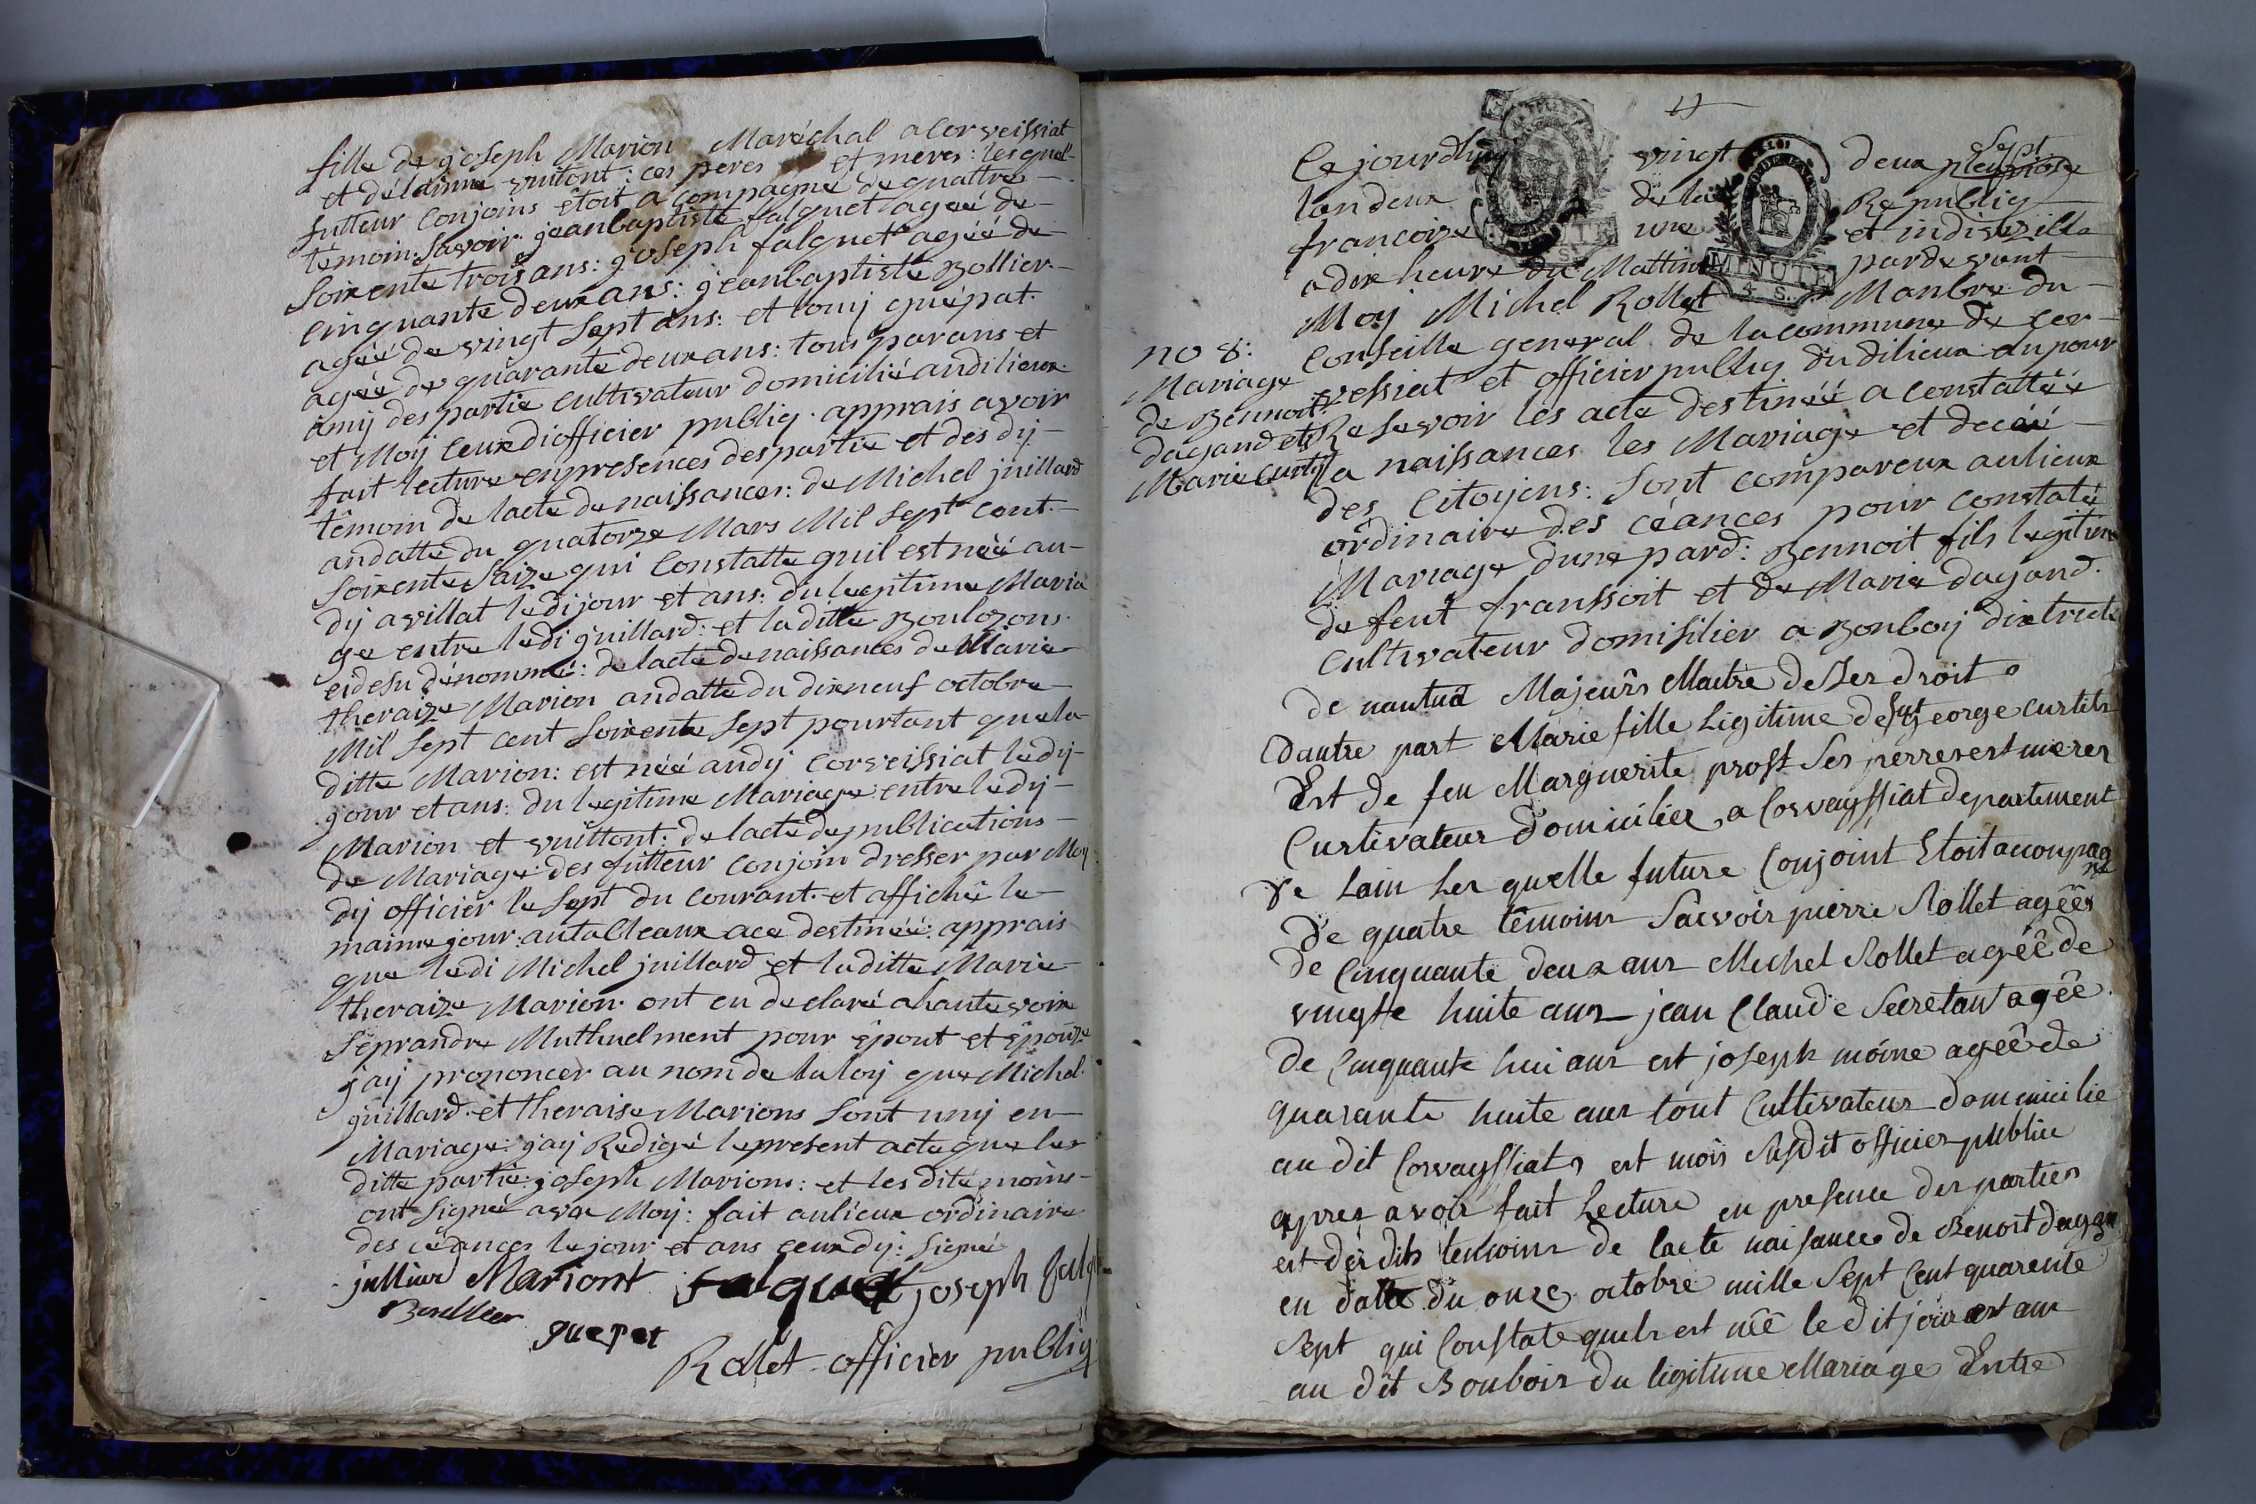 fille de joseph Marion Maréchal a Corveissiat
et delaimé vuitont: ces peres et meres: les quel-
futteur Conjoins étoit a Compagne de quattre-
témoin: Savoir: jeanbaptiste falquet agéé de-
Soixente trois ans: joseph falquet agéé de
cinquante deux ans: jeanbaptiste Bollier-
agéé de vingt Sept ans: et louij guépat-
agéé de quarante deux ans: tous parans et
âmij des partie cultivateur domicilié audilieux-
et Moij Ceuxdi officier publiq: apprais avoir
fait lecture enpresences despartie et des dij-
témoin de lacte de naissances: de Michel juillard
andatte du quatorze Mars Mil Sept cent.-
Soixente Saize qui Constatte quil est néé au-
dij avillat ledi jour et ans: du legitime Maria
ge entre ledi juillard: et laditte Boulozons.
cidesu dénommé: de lacte de naissances de Marie-
theraize Marion andatte du dixneuf octobre-
Mil Sept cent Soixente Sept pourtant quela-
ditte Marion: est néé audij Corveissiat ledij-
jour et ans: du legitime Mariage entre ledij-
Marion et vuittont: de lacte depublications-
de Mariage: des futteur Conjoin dresser par Moij
dij officier le Sept du Courant: et affiché le-
maime jour: autablleaux ace destinéé: apprais
que ledi Michel juillard et laditte Marie-
theraize Marion: ont eu declaré ahaute voix
Seprandre Muthuelment pour époux et épouze
jaij prononcer au nom de laloij que Michel-
juillard: et theraise Marions Sont unij en-
Mariage: jaij Rédigé lepresent acte que les
ditte partie: joseph Marions: et les dité moins-
ont Signé avec Moij: fait aulieux ordinaire
des céances lejour et ans ceuxdij: Signé
jullierd Mariont falquet joseph falq
Boullier guepet
Rollet officier publiq
Ce jourdhuij vingt deux pluviose Sept
landeux de la Republiq
francoize une et indivizille
a dix heure du Mattin pardevant
Moij Michel Rollet Manbre du-
Conseille general de lacommune de Cor-
vessiat et officier publiq dudilieux elu pour
Resevoir les acte destinéé a constattéé
la naissances les Mariage et decéé-
des Citoyens: Sont compareux aulieux
ordinaire des céances pour constaté
Mariage dune pard: Bennoit fils legitime
de feut franssoit et de Marie dagand.
cultivateur domisilier a Bonboij dixtricte
no 8:
Mariage
de Bennoit
dagand et
Marie Curtet
de nantua Majeurs Maitre de Ses droit
Dautre part Marie fille Legitime de fut George curtets
Est de feu Marguerite prost Ses perrerest meres
Curtivateur domicilier, a Corvayssiat departement
de Lain Les quelle future Conjoint Etoit accompag
ne
De quatre témoins Sacvoir pierre Rollet agéés
de Cinquante deux ans Michel Rollet agéé de
vingte huite ans jean Claude Secretan agéé
de Cinquante hui ans est joseph moine agéé de
quarante huite ans tout Cultivateur domimicilie
au dit Corvayssiat est mois Susdit officier publiu
apres avoir fait Lecture en presence der parties
est der dits temoins de lacte naisance de Benoit dagan
en datte du onze octobre mille Sept Cent quarente
Sept qui Constate quels est néé le dit jour est an
au dit Bonbois du legitime Mariage Entre